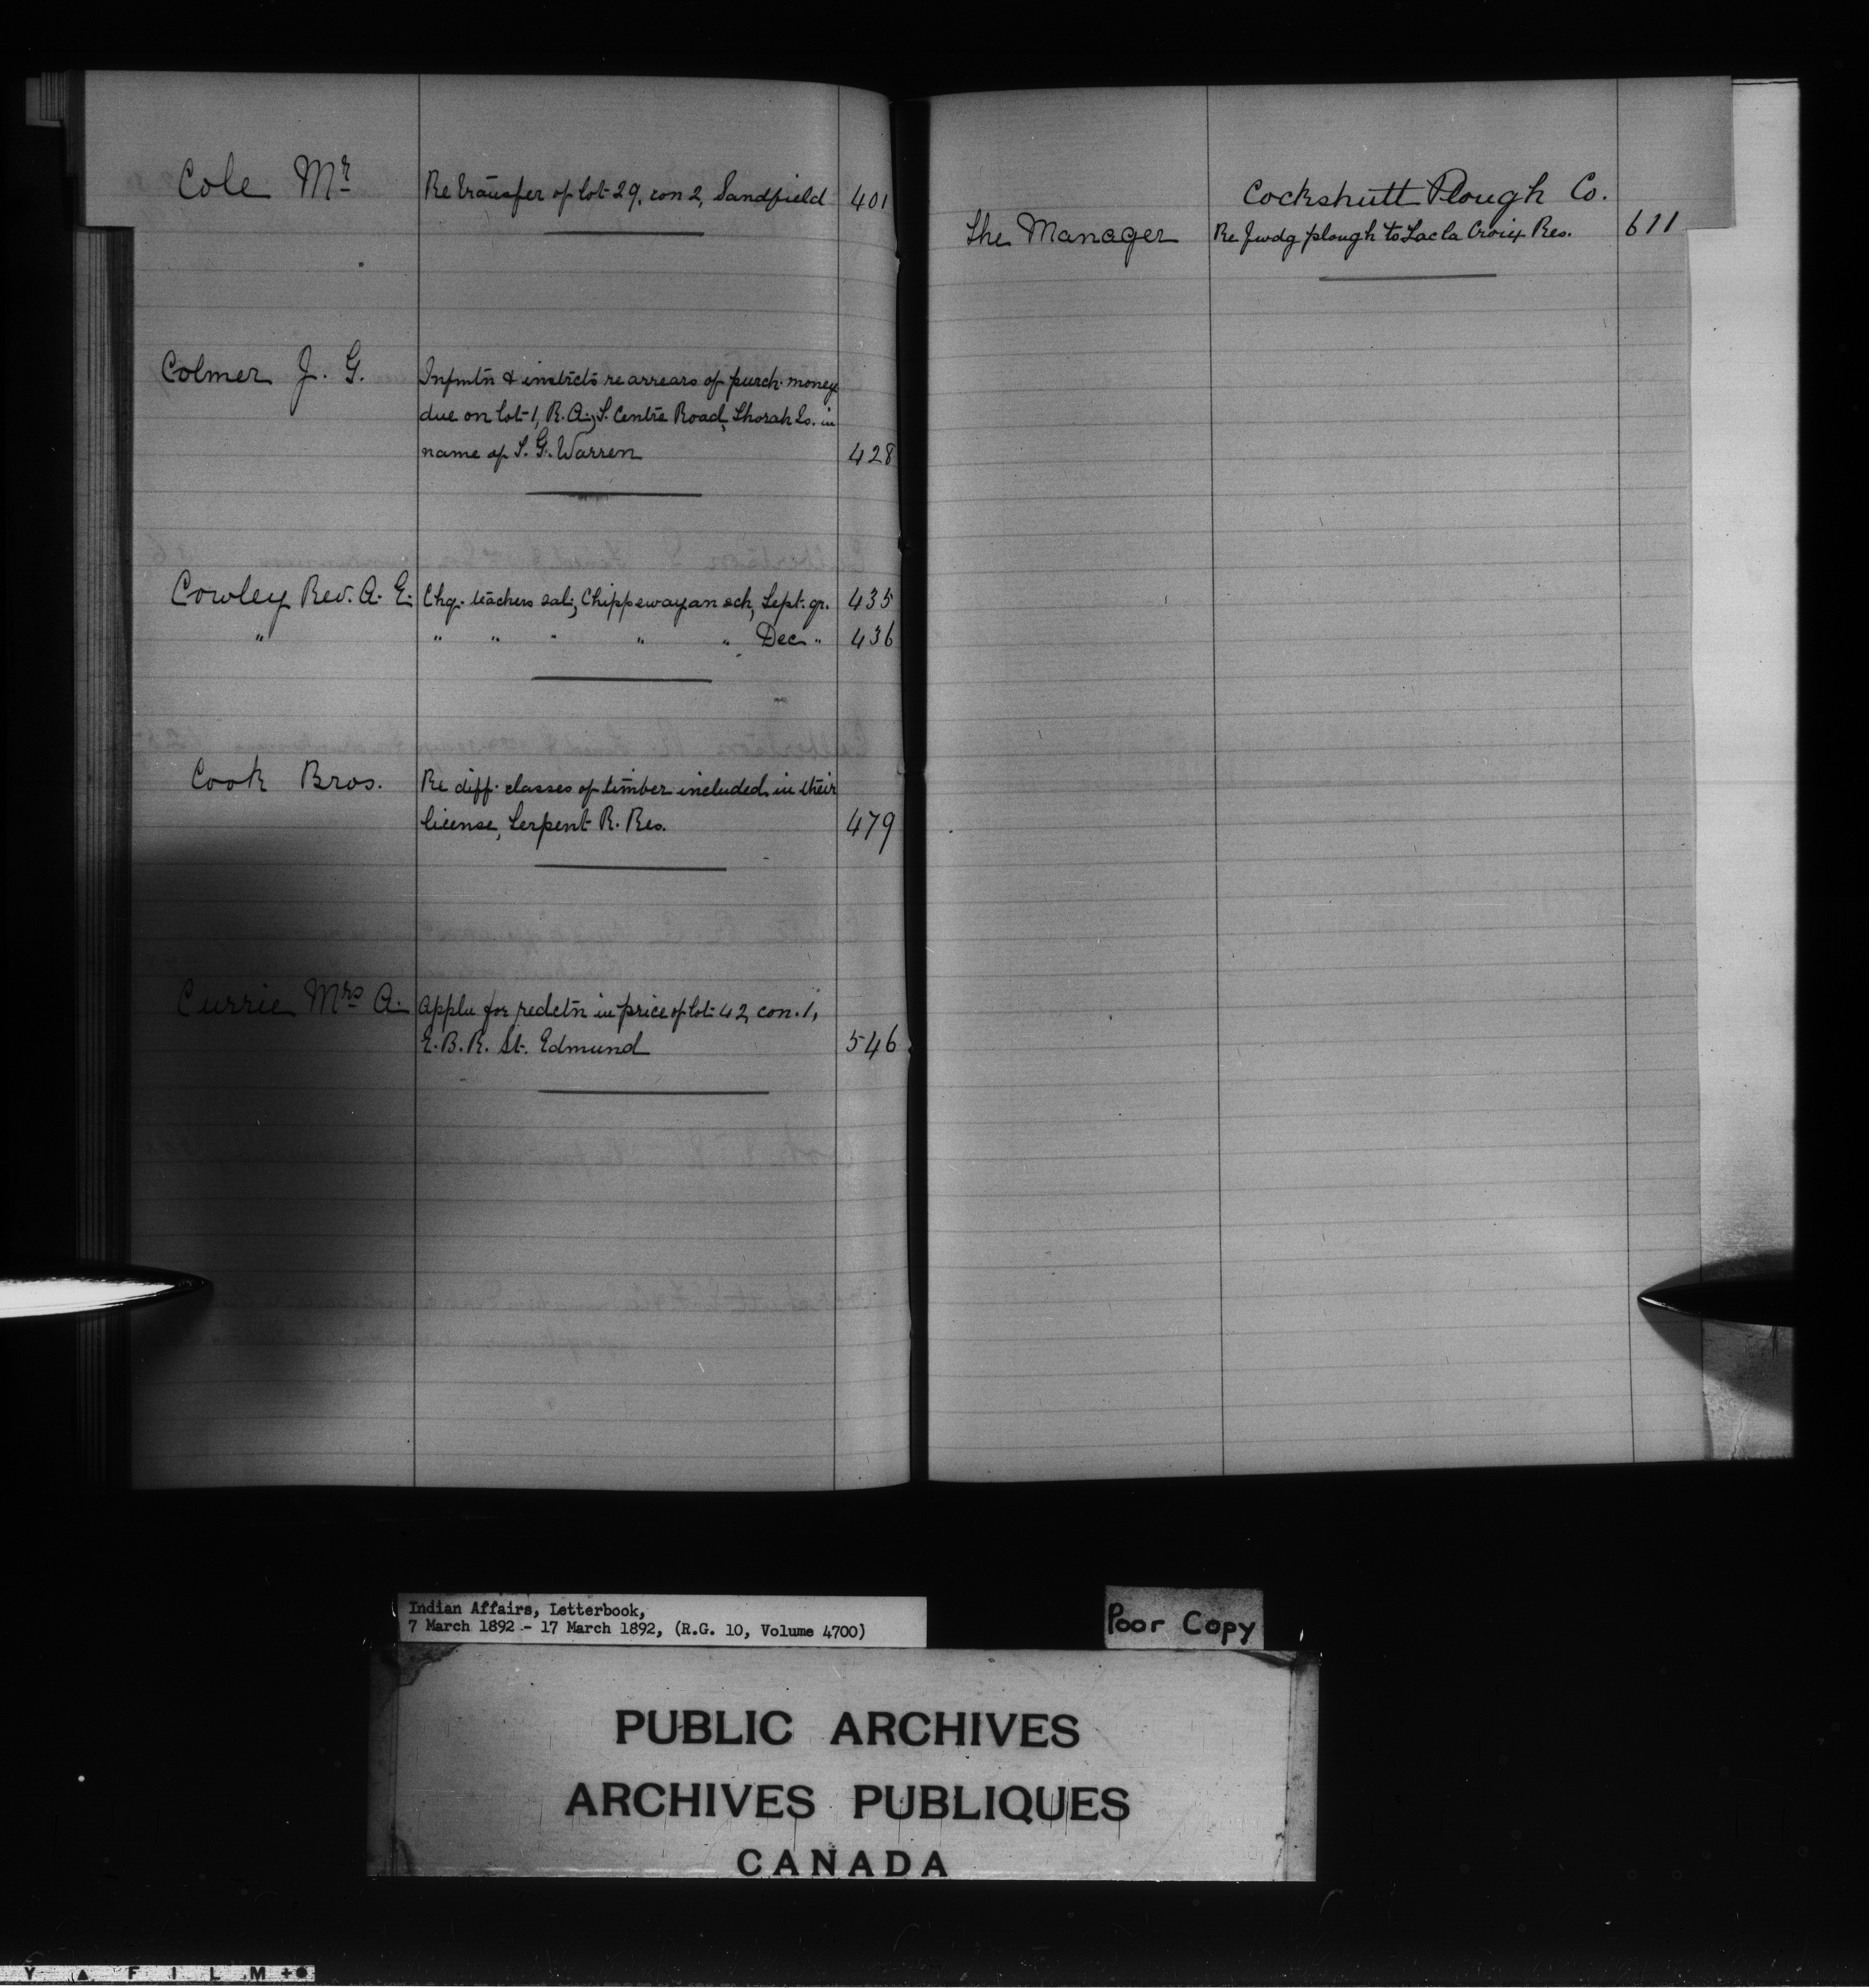 Cole Mr Re transfer of lot 29, con 2, Sandfield 401
Colmer J. G. Infmtn & instrcts re arrears of purch. money
due on lot 1, R. A., S. Centre Road, Thorah Is. in
name of S. G. Warren 428
Cowley Rev. A. E. Chq. teachers sal; Chippewayan sch, Sept. qr. 435
" " " " " " Dec " 436
Cook Bros. Re diff. classes of timber included in their
license, Serpent R. Res. 479
Currie Mrs A. Appln for redctn in price of lot 42, con. 1,
E. B. R. St. Edmund 546
Cockshutt Plough Co.
The Manager Re fwdg plough to Lac la Croix Res. 611
Indian Affairs, Letterbook,
7 March 1892 - 17 March 1892, (R.G. 10, Volume 4700)
Poor Copy
PUBLIC ARCHIVES
ARCHIVES PUBLIQUES
CANADA
Y ▲ F I L M +●